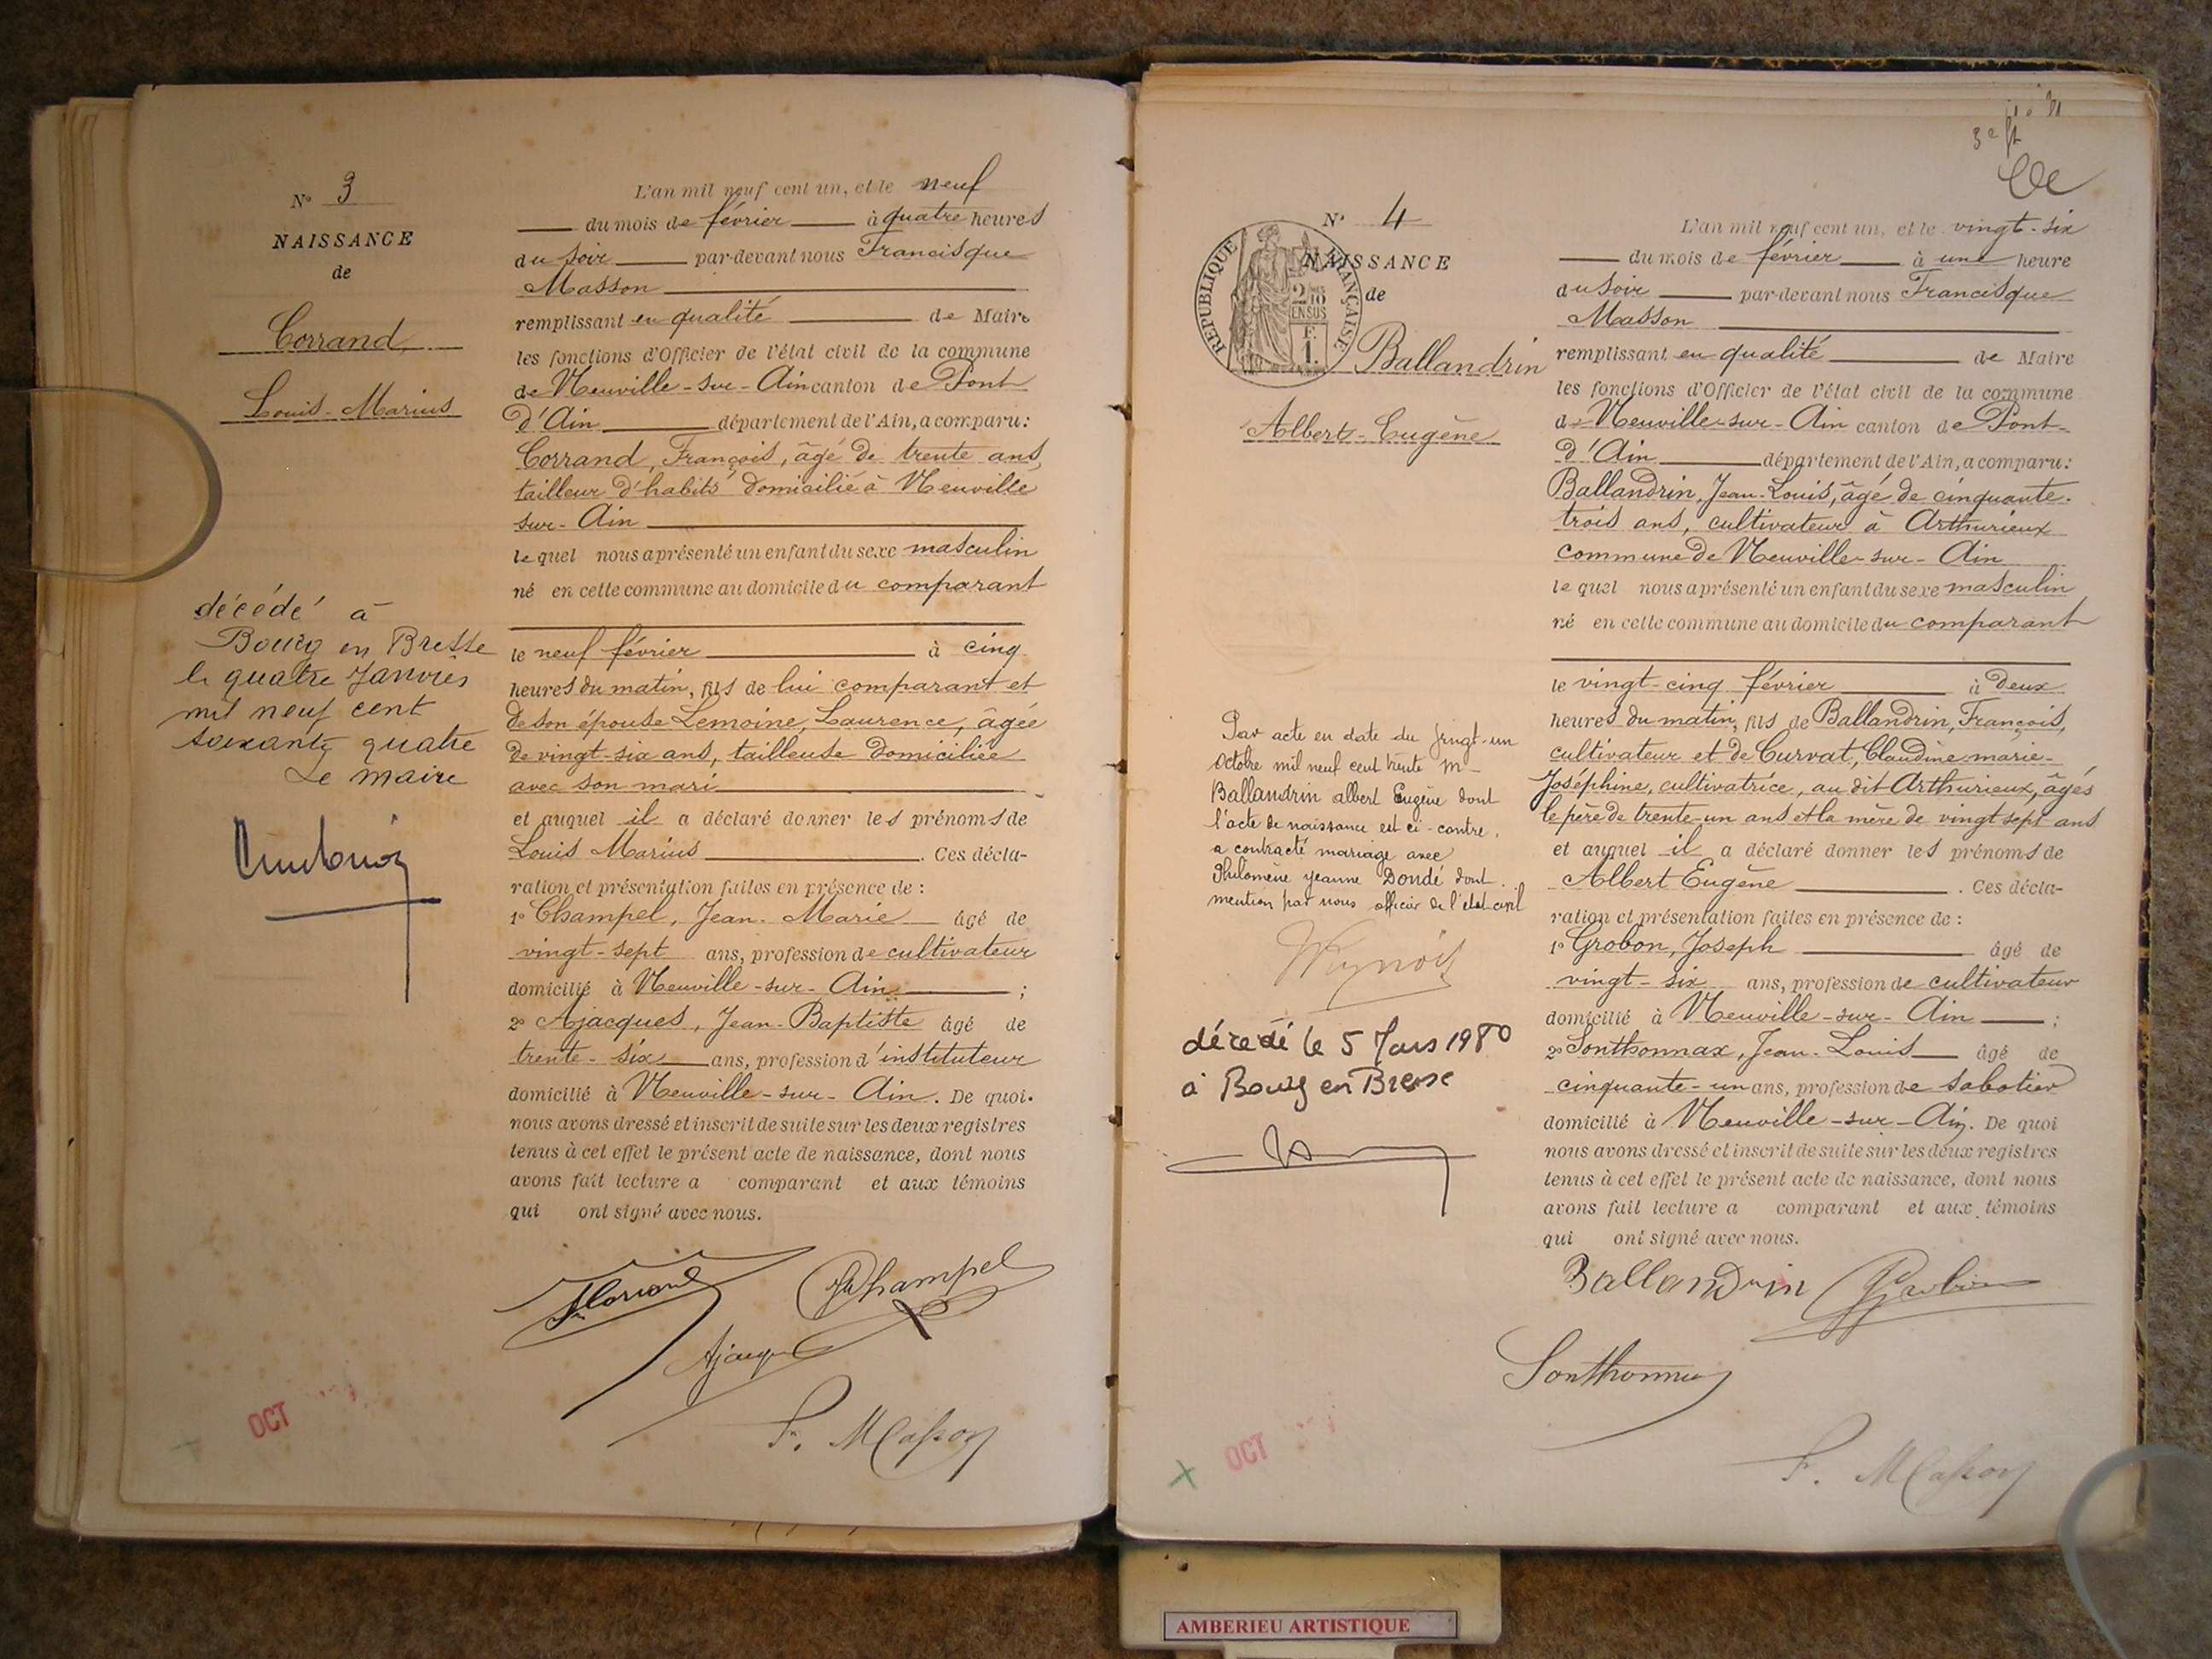 N° 3
NAISSANCE
de
Corrand
Louis-Marius
décédé à
Bourg en Bresse
le quatre Janvier
mil neuf cent
soixante quatre
Le maire
L'an mil neuf cent un, et le neuf
du mois de février à quatre heures
du soir par-devant nous Francisque
Masson
remplissant en qualité de Maire
les fonctions d'Officier de l'état civil de la commune
de Neuville-sur-Ain canton de Pont
d'Ain département de l'Ain, a comparu:
Corrand, François, âgé de trente ans,
tailleur d'habits domicilié à Neuville
sur-Ain
le quel nous a présenté un enfant du sexe masculin
né en cette commune au domicile du comparant
le neuf février à cinq
heures du matin, fils de lui comparant et
de son épouse Lemoine, Laurence, âgée
de vingt-six ans, tailleuse domiciliée
avec son mari
et auquel il a déclaré donner les prénoms de
Louis Marius. Ces décla-
ration et présentation faites en présence de :
1° Champel, Jean-Marie âgé de
vingt-sept ans, profession de cultivateur
domicilié à Neuville-sur-Ain ;
2° Ajacques, Jean-Baptiste âgé de
trente-six ans, profession d'instituteur
domicilié à Neuville-sur-Ain. De quoi
nous avons dressé et inscrit de suite sur les deux registres
tenus à cet effet le présent acte de naissance, dont nous
avons fait lecture a comparant et aux témoins
qui ont signé avec nous.
Champel
F. Masson
OCT
N° 4
NAISSANCE
de
REPUBLIQUE FRANÇAISE
2/10 EN SUS
F. 1.
Ballandrin
Albert-Eugène
Par acte en date du vingt-un
Octobre mil neuf cent trente
Ballandrin albert Eugène dont
l'acte de naissance est ci-contre,
a contracté mariage avec
Philomène Jeanne Dondé dont
mention par nous officier de l'état civil
décédé le 5 Mars 1980
à Bourg en Bresse
L'an mil neuf cent un, et le vingt-six
du mois de février à une heure
du soir par-devant nous Francisque
Masson
remplissant en qualité de Maire
les fonctions d'Officier de l'état civil de la commune
de Neuville-sur-Ain canton de Pont-
d'Ain département de l'Ain, a comparu:
Ballandrin, Jean-Louis, âgé de cinquante-
trois ans, cultivateur à Arthurieux
commune de Neuville-sur-Ain
le quel nous a présenté un enfant du sexe masculin
né en cette commune au domicile du comparant
le vingt-cinq février à deux
heures du matin, fils de Ballandrin, François,
cultivateur et de Curvat, Claudine marie-
Joséphine, cultivatrice, au dit Arthurieux, âgés
le père de trente-un ans et la mère de vingt sept ans
et auquel il a déclaré donner les prénoms de
Albert Eugène. Ces décla-
ration et présentation faites en présence de :
1° Grobon, Joseph âgé de
vingt-six ans, profession de cultivateur
domicilié à Neuville-sur-Ain ;
2° Sonthonnax, Jean-Louis âgé de
cinquante-un ans, profession de sabotier
domicilié à Neuville-sur-Ain. De quoi
nous avons dressé et inscrit de suite sur les deux registres
tenus à cet effet le présent acte de naissance, dont nous
avons fait lecture a comparant et aux témoins
qui ont signé avec nous.
Ballandrin Grobon
Sonthonnax
F. Masson
OCT
AMBERIEU ARTISTIQUE